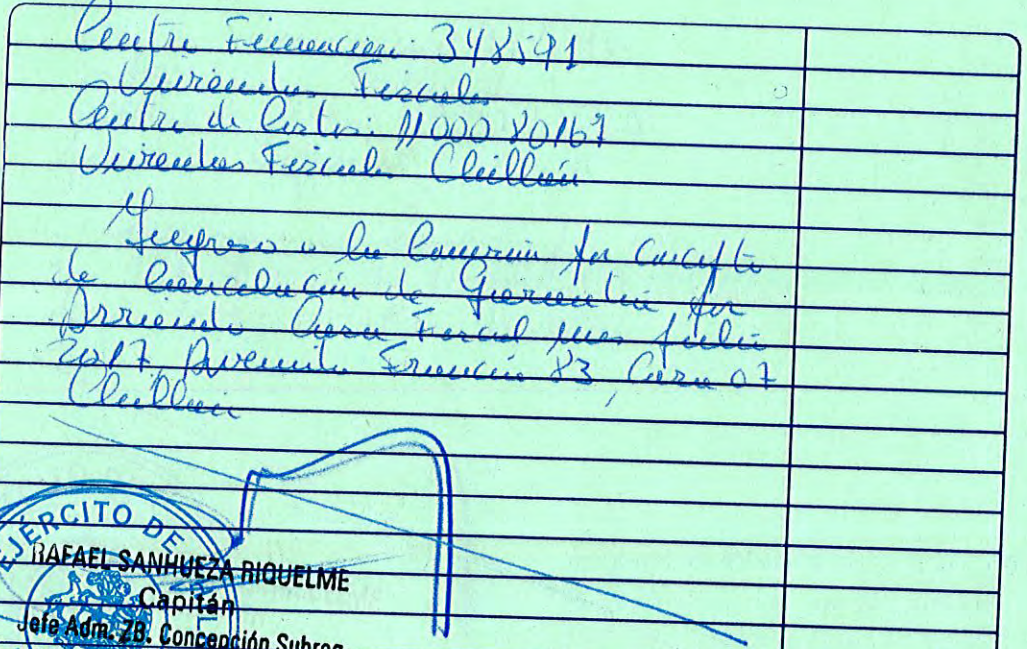 Centro Financiero: 348591
Viviendas Fiscales
Centro de Costos: 11000 80167
Viviendas Fiscales Chillán
Ingreso a la Comisión por Concepto
de Cancelación de Garantía por
Arriendo Casa Fiscal mes Julio
2017, Avenida Francia 83, Casa 07
Chillán
EJÉRCITO DE
RAFAEL SANHUEZA RIQUELME
Capitán
Jefe Adm. ZB. Concepción Subrog.